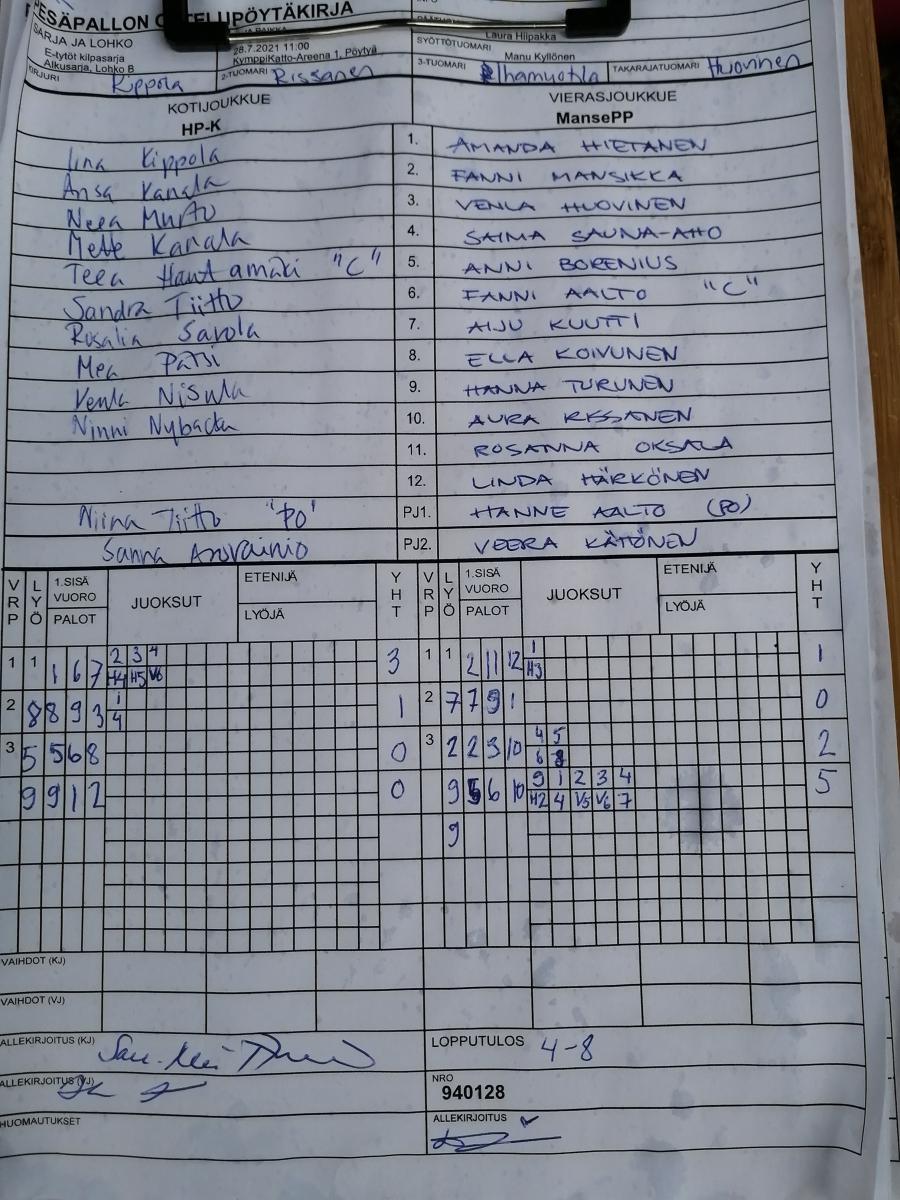 PESÄPALLON O TELUPÖYTÄKIRJA
SARJA JA LOHKO
E-tytöt kilpasarja
Alkusarja, Lohko B
28.7.2021 11:00
KymppiKatto-Areena 1, Pöytyä
Laura Hiipakka
SYÖTTÖTUOMARI
Manu Kyllönen
KIRJURI Kippola
2-TUOMARI Rissanen
3-TUOMARI
TAKARAJATUOMARI Huovinen
KOTIJOUKKUE
HP-K
VIERASJOUKKUE
MansePP
Iina Kippola 1. AMANDA HIETANEN
Ansa Kanala 2. FANNI MANSIKKA
Neea Murto 3. VENLA HUOVINEN
Mette Kanala 4. SAIMA SAUNA-AHO
Teea Hautamäki "C" 5. ANNI BORENIUS
Sandra Tiitto 6. FANNI AALTO "C"
Rosalia Savola 7. AIJU KUUTTI
Mea Patsi 8. ELLA KOIVUNEN
Venla Nisula 9. HANNA TURUNEN
Ninni Nybacka 10. AURA RISSANEN
11. ROSANNA OKSALA
12. LINDA HÄRKÖNEN
Niina Tiitto "PO" PJ1. HANNE AALTO (PO)
Sanna PJ2. VEERA KÄTÖNEN
VRP LYÖ 1.SISÄ VUORO PALOT JUOKSUT ETENIJÄ LYÖJÄ YHT VRP LYÖ 1.SISÄ VUORO PALOT JUOKSUT ETENIJÄ LYÖJÄ YHT
1 1 1 6 7 2 3 4 3 1 1 2 11 12 1 1
H4 H5 V6 H3
2 8 8 9 3 1 1 2 7 7 9 1 0
4
3 5 5 6 8 0 3 2 2 3 10 4 5 2
6 8
9 9 1 2 0 9 5 6 10 9 1 2 3 4 5
H2 4 V5 V6 7
9
VAIHDOT (KJ)
VAIHDOT (VJ)
ALLEKIRJOITUS (KJ)
LOPPUTULOS 4-8
ALLEKIRJOITUS (VJ)
NRO
940128
HUOMAUTUKSET
ALLEKIRJOITUS